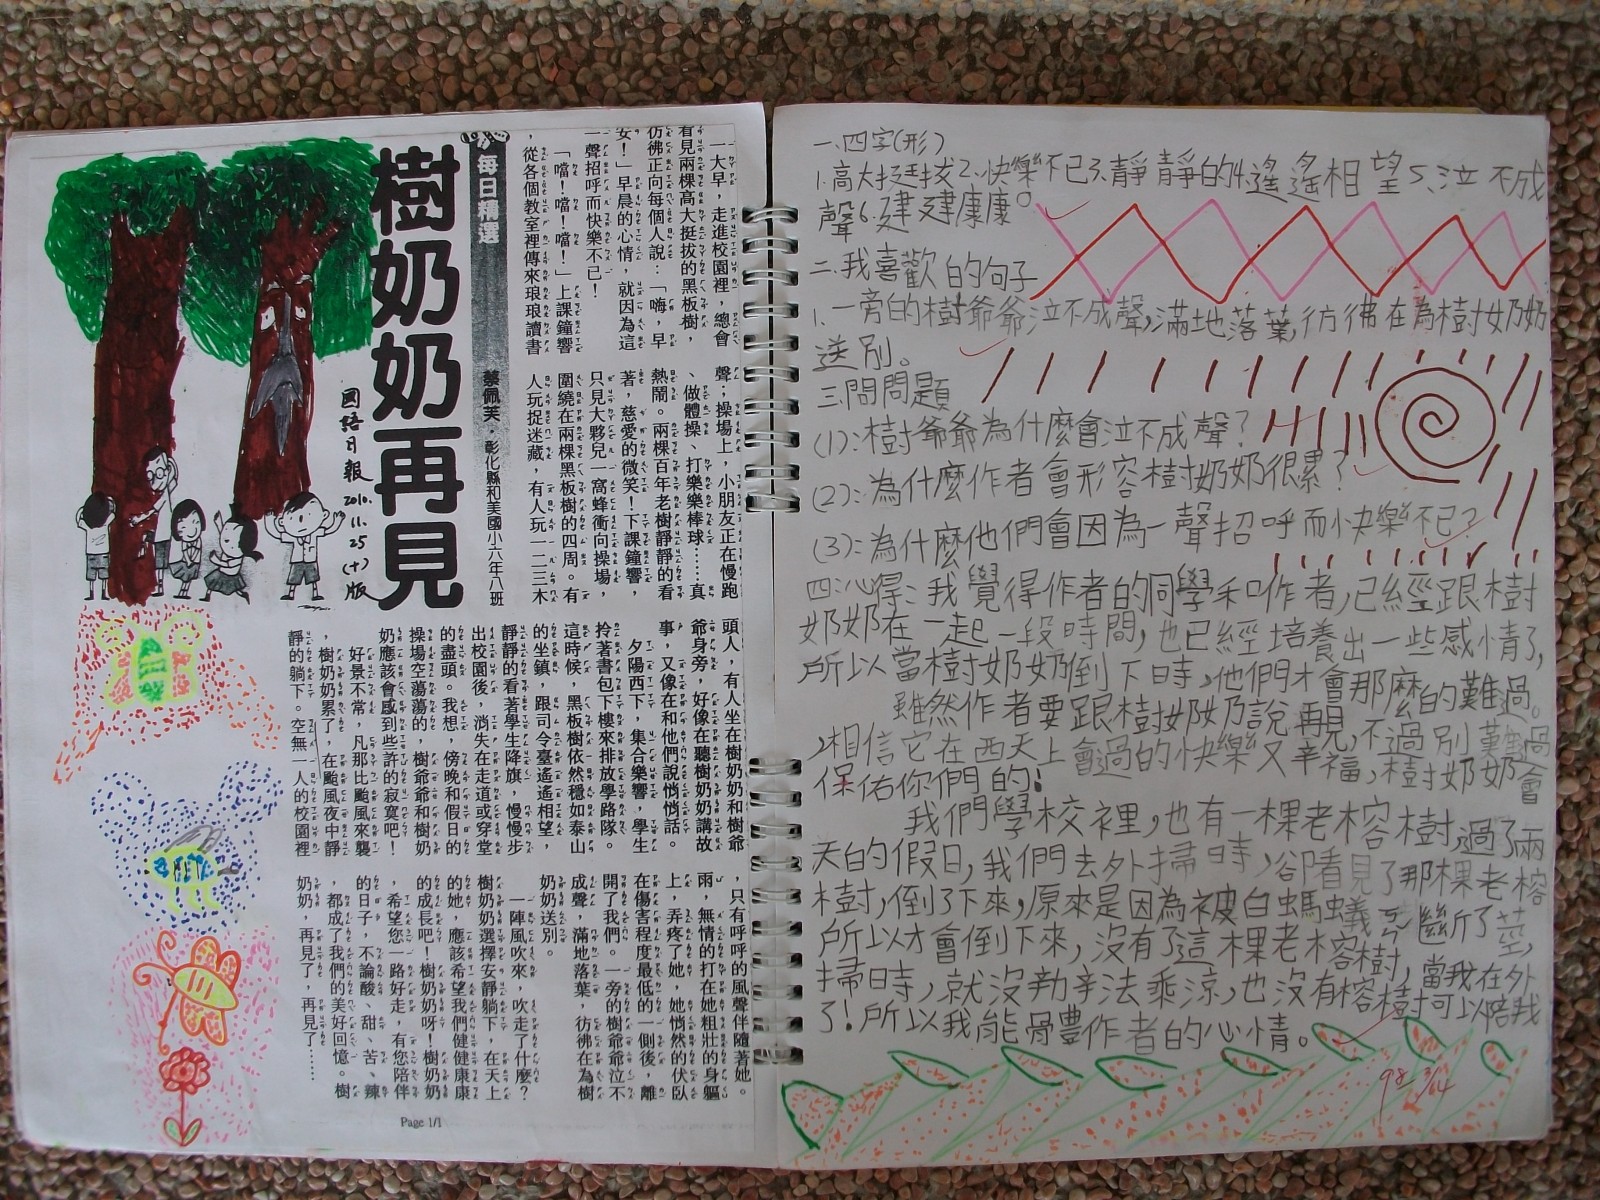 每日精選
樹奶奶再見
蔡佩芙．彰化縣和美國小六年八班
國語日報
2010.
11.25
(十)
版
一大早，走進校園裡，總會
看見兩棵高大挺拔的黑板樹，
彷彿正向每個人說：「嗨，早
安！」早晨的心情，就因為這
一聲招呼而快樂不已！
「噹！噹！噹！」上課鐘響
，從各個教室裡傳來琅琅讀書
聲；操場上，小朋友正在慢跑
、做體操、打樂樂棒球……真
熱鬧。兩棵百年老樹靜靜的看
著，慈愛的微笑！下課鐘響，
只見大夥兒一窩蜂衝向操場，
圍繞在兩棵黑板樹的四周。有
人玩捉迷藏，有人玩一二三木
頭人，有人坐在樹奶奶和樹爺
爺身旁，好像在聽樹奶奶講故
事，又像在和他們說悄悄話。
夕陽西下，集合樂響，學生
拎著書包下樓來排放學路隊。
這時候，黑板樹依然穩如泰山
的坐鎮，跟司令臺遙遙相望，
靜靜的看著學生降旗，慢慢步
出校園後，消失在走道或穿堂
的盡頭。我想，傍晚和假日的
操場空蕩蕩的，樹爺爺和樹奶
奶應該會感到些許的寂寞吧！
好景不常，凡那比颱風來襲
，樹奶奶累了，在颱風夜中靜
靜的躺下。空無一人的校園裡
，只有呼呼的風聲伴隨著她。
雨，無情的打在她粗壯的身軀
上，弄疼了她，她悄然的伏臥
在傷害程度最低的一側後，離
開了我們。一旁的樹爺爺泣不
成聲，滿地落葉，彷彿在為樹
奶奶送別。
一陣風吹來，吹走了什麼？
樹奶奶選擇安靜躺下，在天上
的她，應該希望我們健健康康
的成長吧！樹奶奶呀！樹奶奶
，希望您一路好走，有您陪伴
的日子，不論酸、甜、苦、辣
，都成了我們的美好回憶。樹
奶奶，再見了，再見了……
Page 1/1
一、四字(形)
1.高大挺拔2.快樂不已3.靜靜的4.遙遙相望5.泣不成
聲6.建建康康。
二、我喜歡的句子
1.一旁的樹爺爺泣不成聲，滿地落葉，彷彿在為樹奶奶
送別。
三、問問題
(1):樹爺爺為什麼會泣不成聲？
(2):為什麼作者會形容樹奶奶很累？
(3):為什麼他們會因為一聲招呼而快樂不已？
四:心得:我覺得作者的同學和作者，已經跟樹
奶奶在一起一段時間，也已經培養出一些感情了，
所以當樹奶奶倒下時，他們才會那麼的難過。
雖然作者要跟樹奶奶說再見，不過別難過
，相信它在西天上會過的快樂又幸福，樹奶奶會
保佑你們的！
我們學校裡，也有一棵老榕樹，過了兩
天的假日，我們去外掃時，卻看見了那棵老榕
樹，倒了下來，原來是因為被白螞蟻斷了莖，
所以才會倒下來，沒有了這棵老榕樹，當我在外
掃時，就沒辦法乘涼，也沒有榕樹可以陪我
了！所以我能體作者的心情。
98
3/14